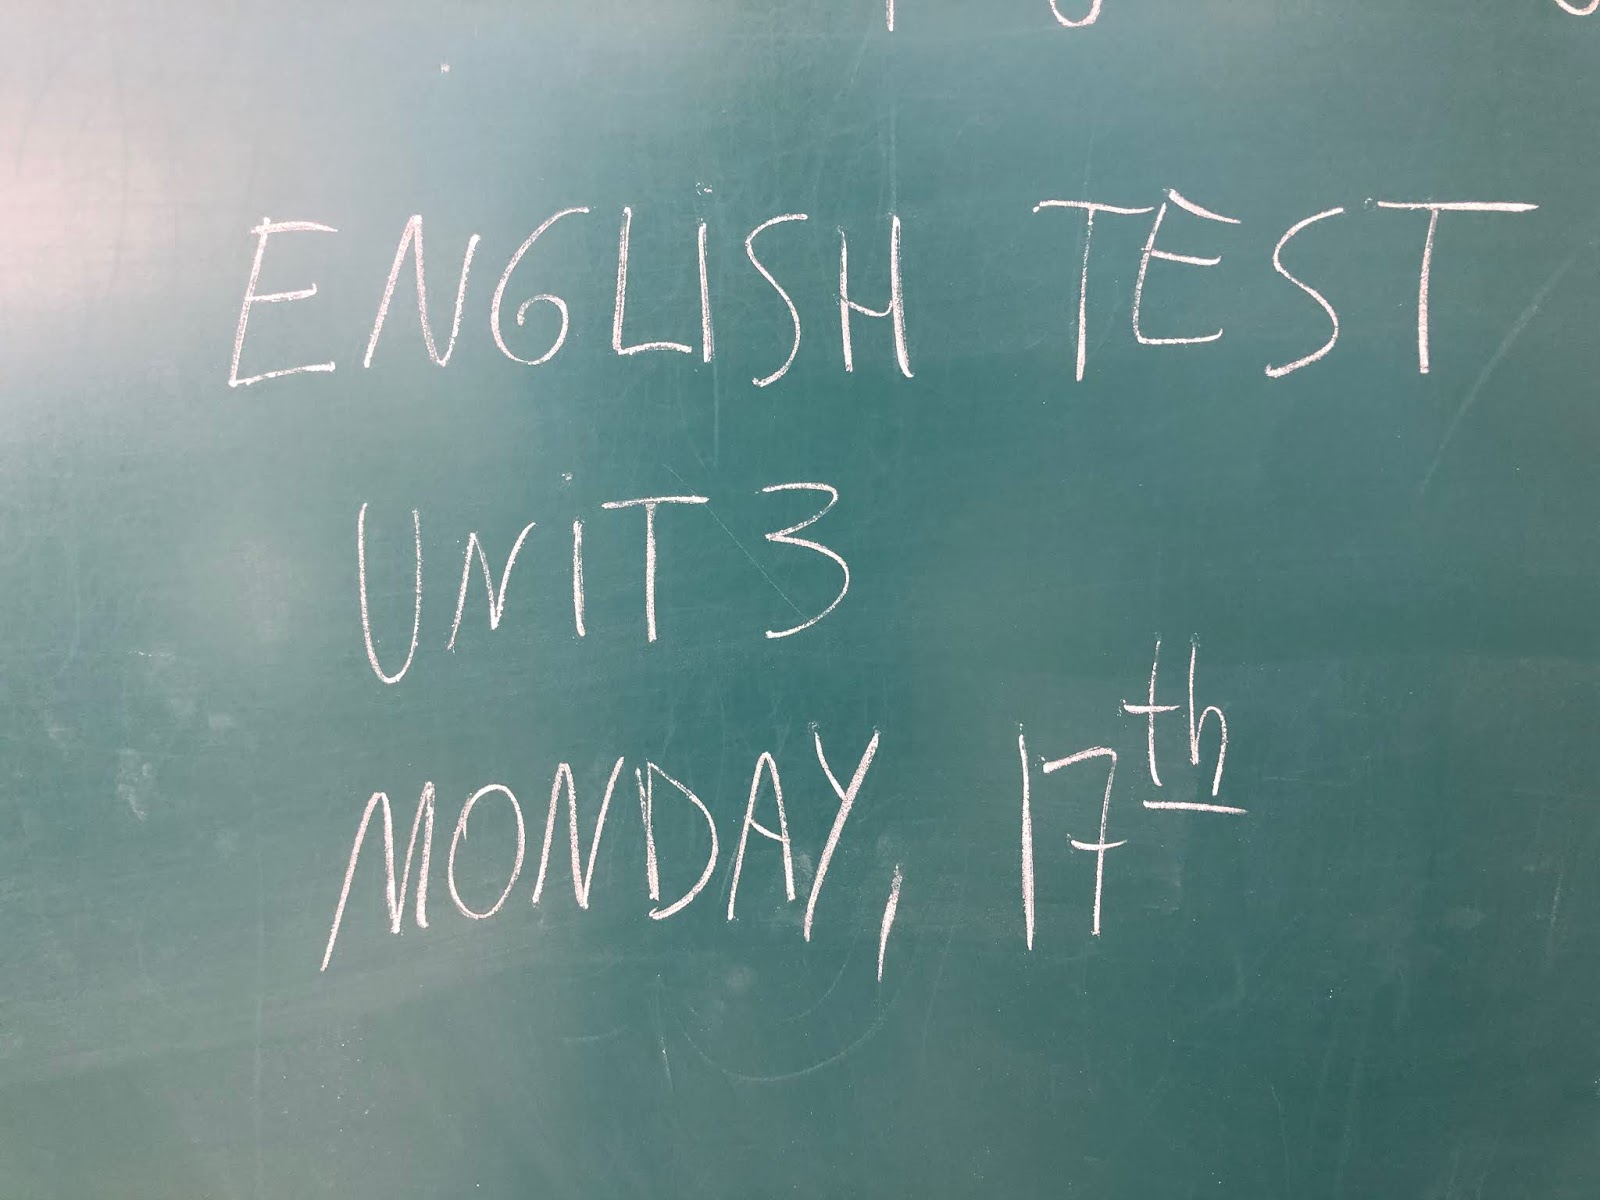 ENGLiSH TEST
UNiT 3
MONDAY, 17th